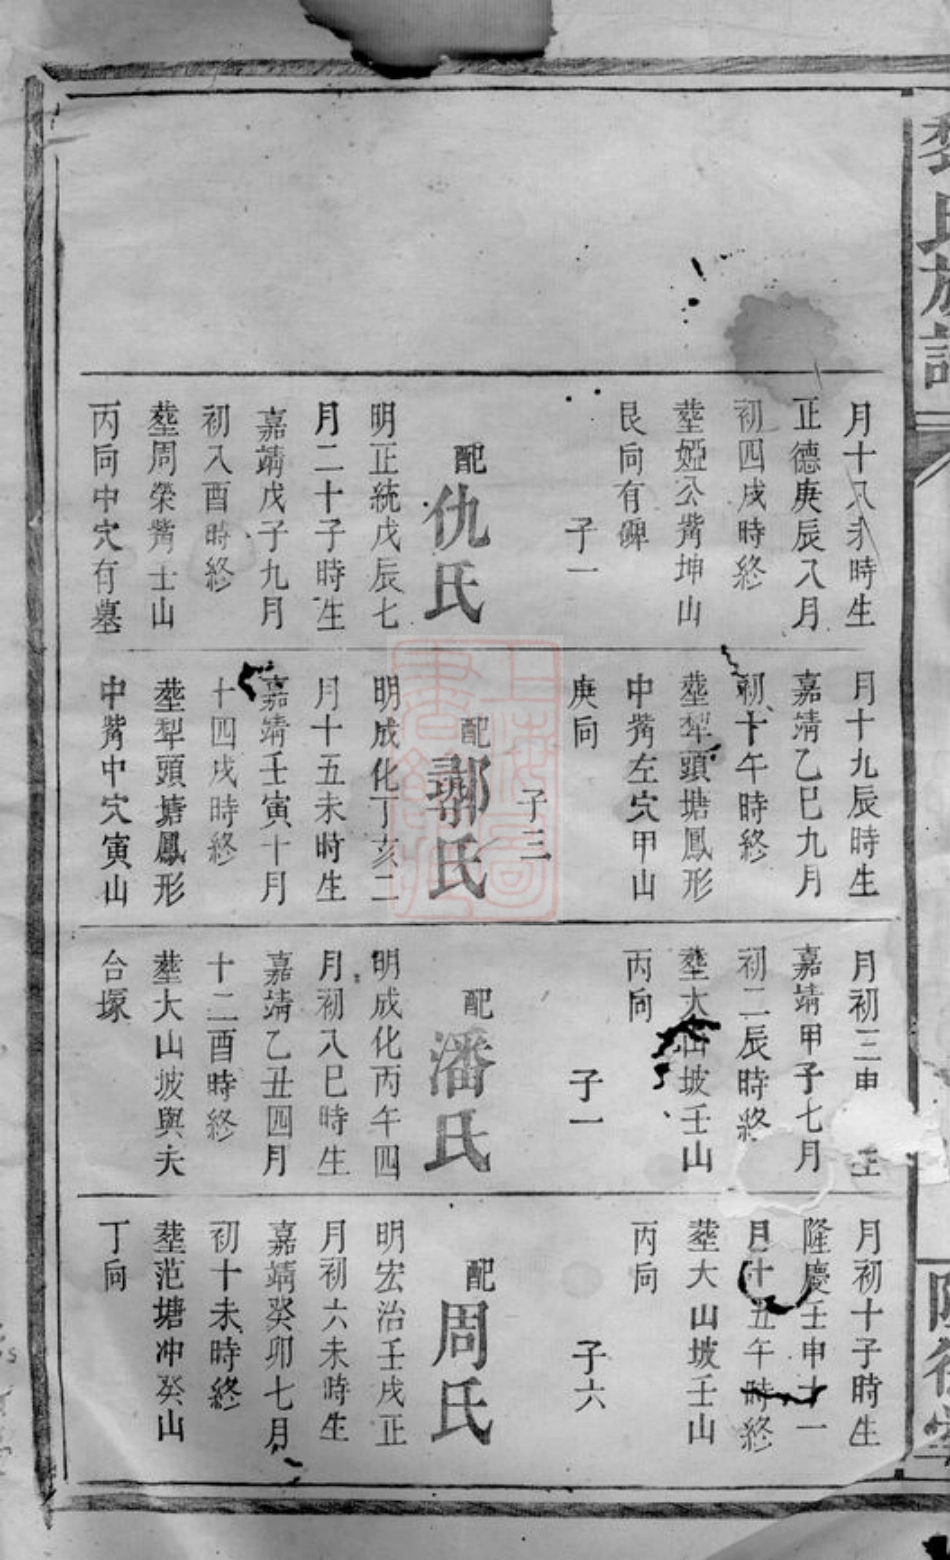 氏族譜
月十八未時生
正德庚辰八月
初四戌時終
塟婭公觜坤山
艮向有碑
子一
配仇氏
明正統戊辰七
月二十子時生
嘉靖戊子九月
初八酉時終
塟周榮觜壬山
丙向中穴有墓
月十九辰時生
嘉靖乙巳九月
初十午時終
塟犁頭塘鳳形
中觜左穴甲山
庚向
子三
配鄢氏
明成化丁亥二
月十五未時生
嘉靖壬寅十月
十四戌時終
塟犁頭塘鳳形
中觜中穴寅山
月初三申
嘉靖甲子七月
初二辰時終
塟大山坡壬山
丙向
子一
配潘氏
明成化丙午四
月初八巳時生
嘉靖乙丑四月
十二酉時終
塟大山坡與夫
台塚
月初十子時生
隆慶壬申十一
月十五午時終
塟大山坡壬山
丙向
子六
配周氏
明宏治壬戌正
月初六未時生
嘉靖癸卯七月
初十未時終
塟范塘冲癸山
丁向